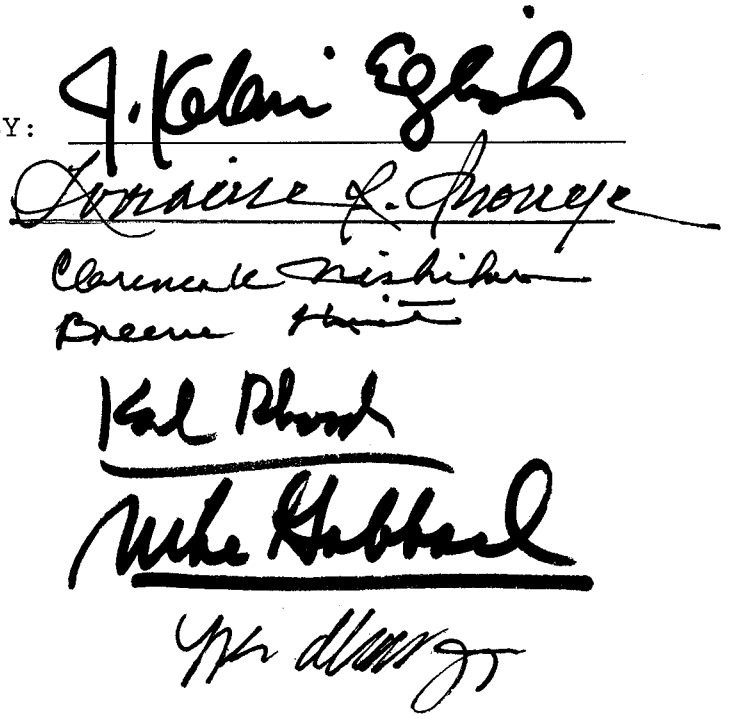 Y: J. Kalani English
Lorraine R. Inouye
Clarence K Nishihara
Breene Harimoto
Karl Rhoads
Mike Gabbard